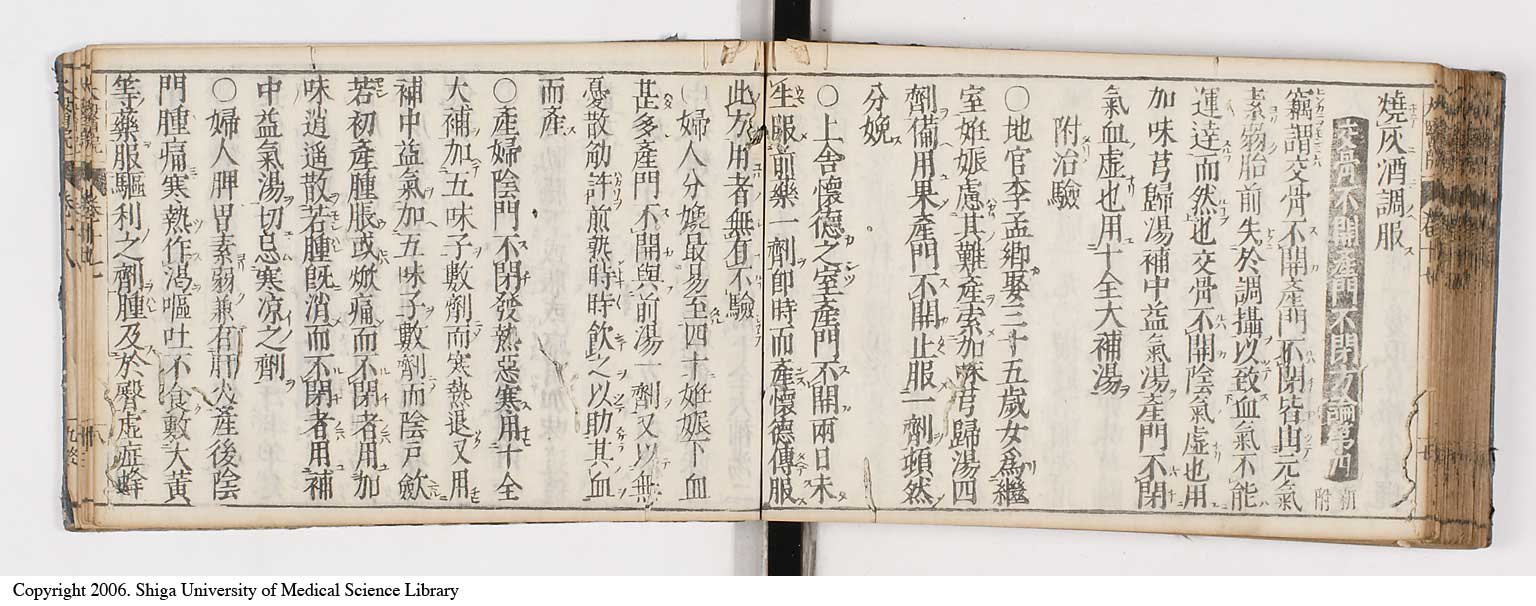 燒灰酒調服
交骨不開產門不閉方論第四 新附
竊謂交骨不開產門不閉皆由元氣
素弱胎前失於調攝以致血氣不能
運達而然也交骨不開陰氣虛也用
加味芎歸湯補中益氣湯產門不閉
氣血虛也用十全大補湯
附治驗
○地官李孟卿娶三十五歲女爲繼
室妊娠慮其難產索加味芎歸湯四
劑備用果產門不開止服一劑頓然
分娩
○上舍懷德之室產門不開兩日未
生服前藥一劑即時而產懷德傳服
此方用者無有不驗
○婦人分娩最易至四十妊娠下血
甚多產門不開與前湯一劑又以無
憂散斂許煎熟時時飲之以助其血
而產
○產婦陰門不閉發熱惡寒用十全
大補加五味子數劑而寒熱退又用
補中益氣加五味子數劑而陰戸斂
若初產腫脹或焮痛而不閉者用加
味逍遥散若腫既消而不閉者用補
中益氣湯切忌寒凉之劑
○婦人脾胃素弱兼有肝火產後陰
門腫痛寒熱作渴嘔吐不食敷大黃
等藥服驅利之劑腫及於臀虛症蜂
Copyright 2006. Shiga University of Medical Science Library